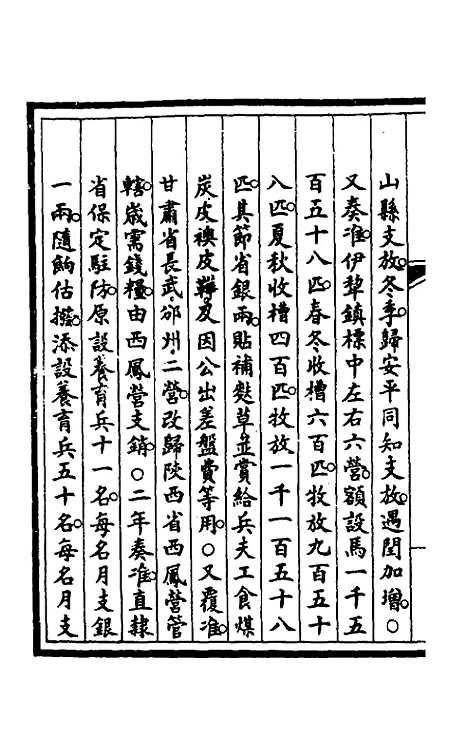 山縣支放。冬季歸安平同知支放。遇閏加增。○
又奏准。伊犂鎮標中左右六營。額設馬一千五
百五十八匹。春冬收槽六百匹。牧放九百五十
八匹。夏秋收槽四百匹。牧放一千一百五十八
匹。其節省銀兩。貼補麩草並賞給兵夫工食煤
炭皮襖皮鞾。及因公出差盤費等用。○又覆准。
甘肅省長武、邠州、二營。改歸陝西省西鳳營管
轄。歲需錢糧。由西鳳營支銷。○二年奏准。直隸
省保定駐防。原設養育兵十一名。每名月支銀
一兩。隨餉估撥。添設養育兵五十名。每名月支